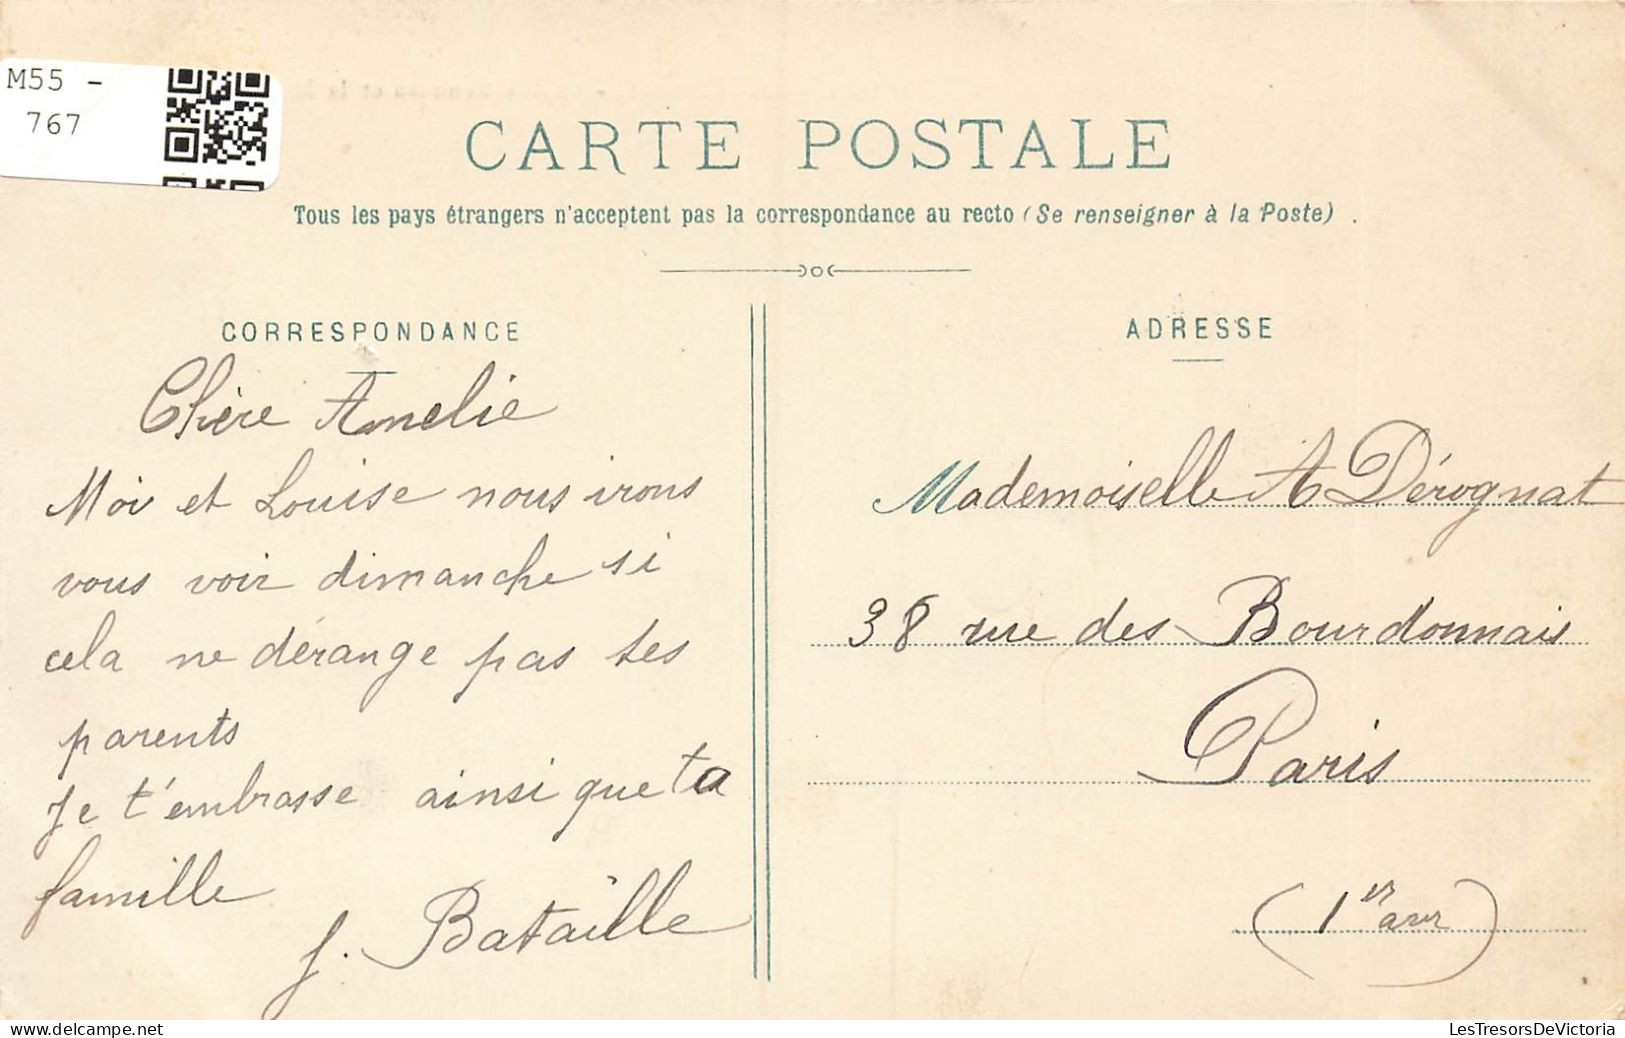 M55 -
767
CARTE POSTALE
Tous les pays étrangers n'acceptent pas la correspondance au recto (Se renseigner à la Poste).
CORRESPONDANCE
Chère Amelie
Moi et Louise nous irons
vous voir dimanche si
cela ne dérange pas tes
parents
Je t'embrasse ainsi que ta
famille
J. Bataille
ADRESSE
Mademoiselle A Dérognat
38 rue des Bourdonnais
Paris
(1er arr)
LesTresorsDeVictoria.com